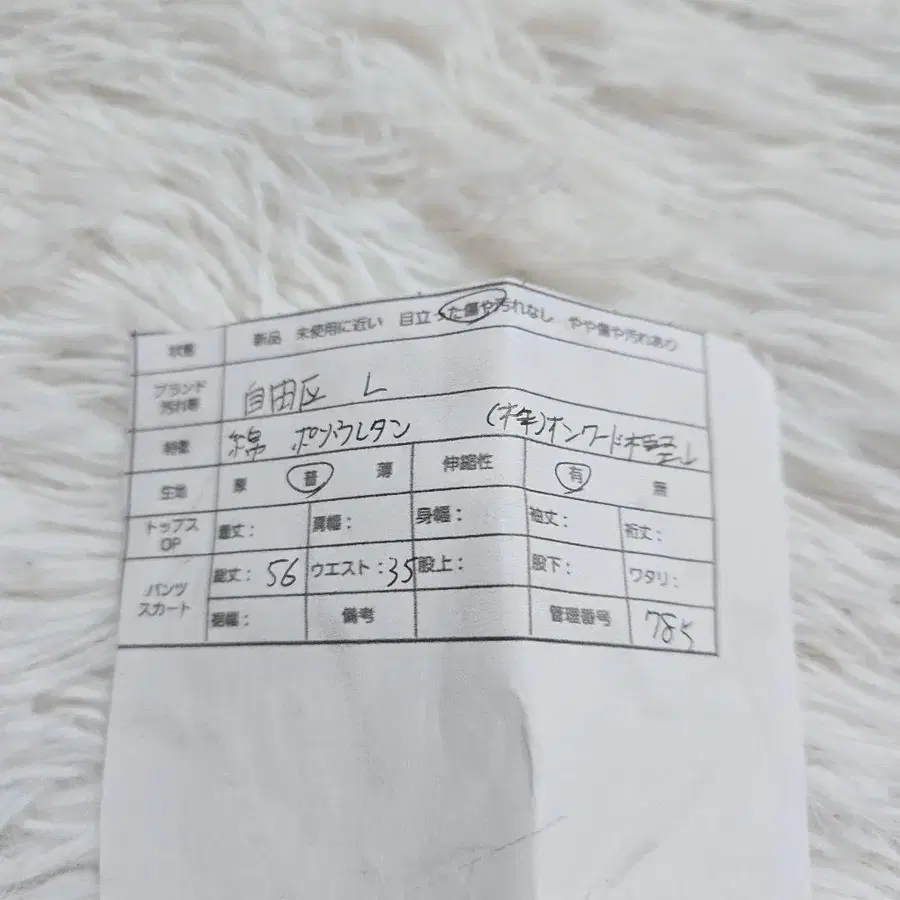 状態 新品 未使用に近い 目立った傷や汚れなし やや傷や汚れあり
ブランド 汚れ等 自由区 L
特徴 綿 ポリウレタン (株)オンワード樫山
生地 厚 普 薄 伸縮性 有 無
トップス OP 着丈: 肩幅: 身幅: 袖丈: 裄丈:
パンツ スカート 総丈: 56 ウエスト: 35 股上: 股下: ワタリ:
裾幅: 備考 管理番号 785